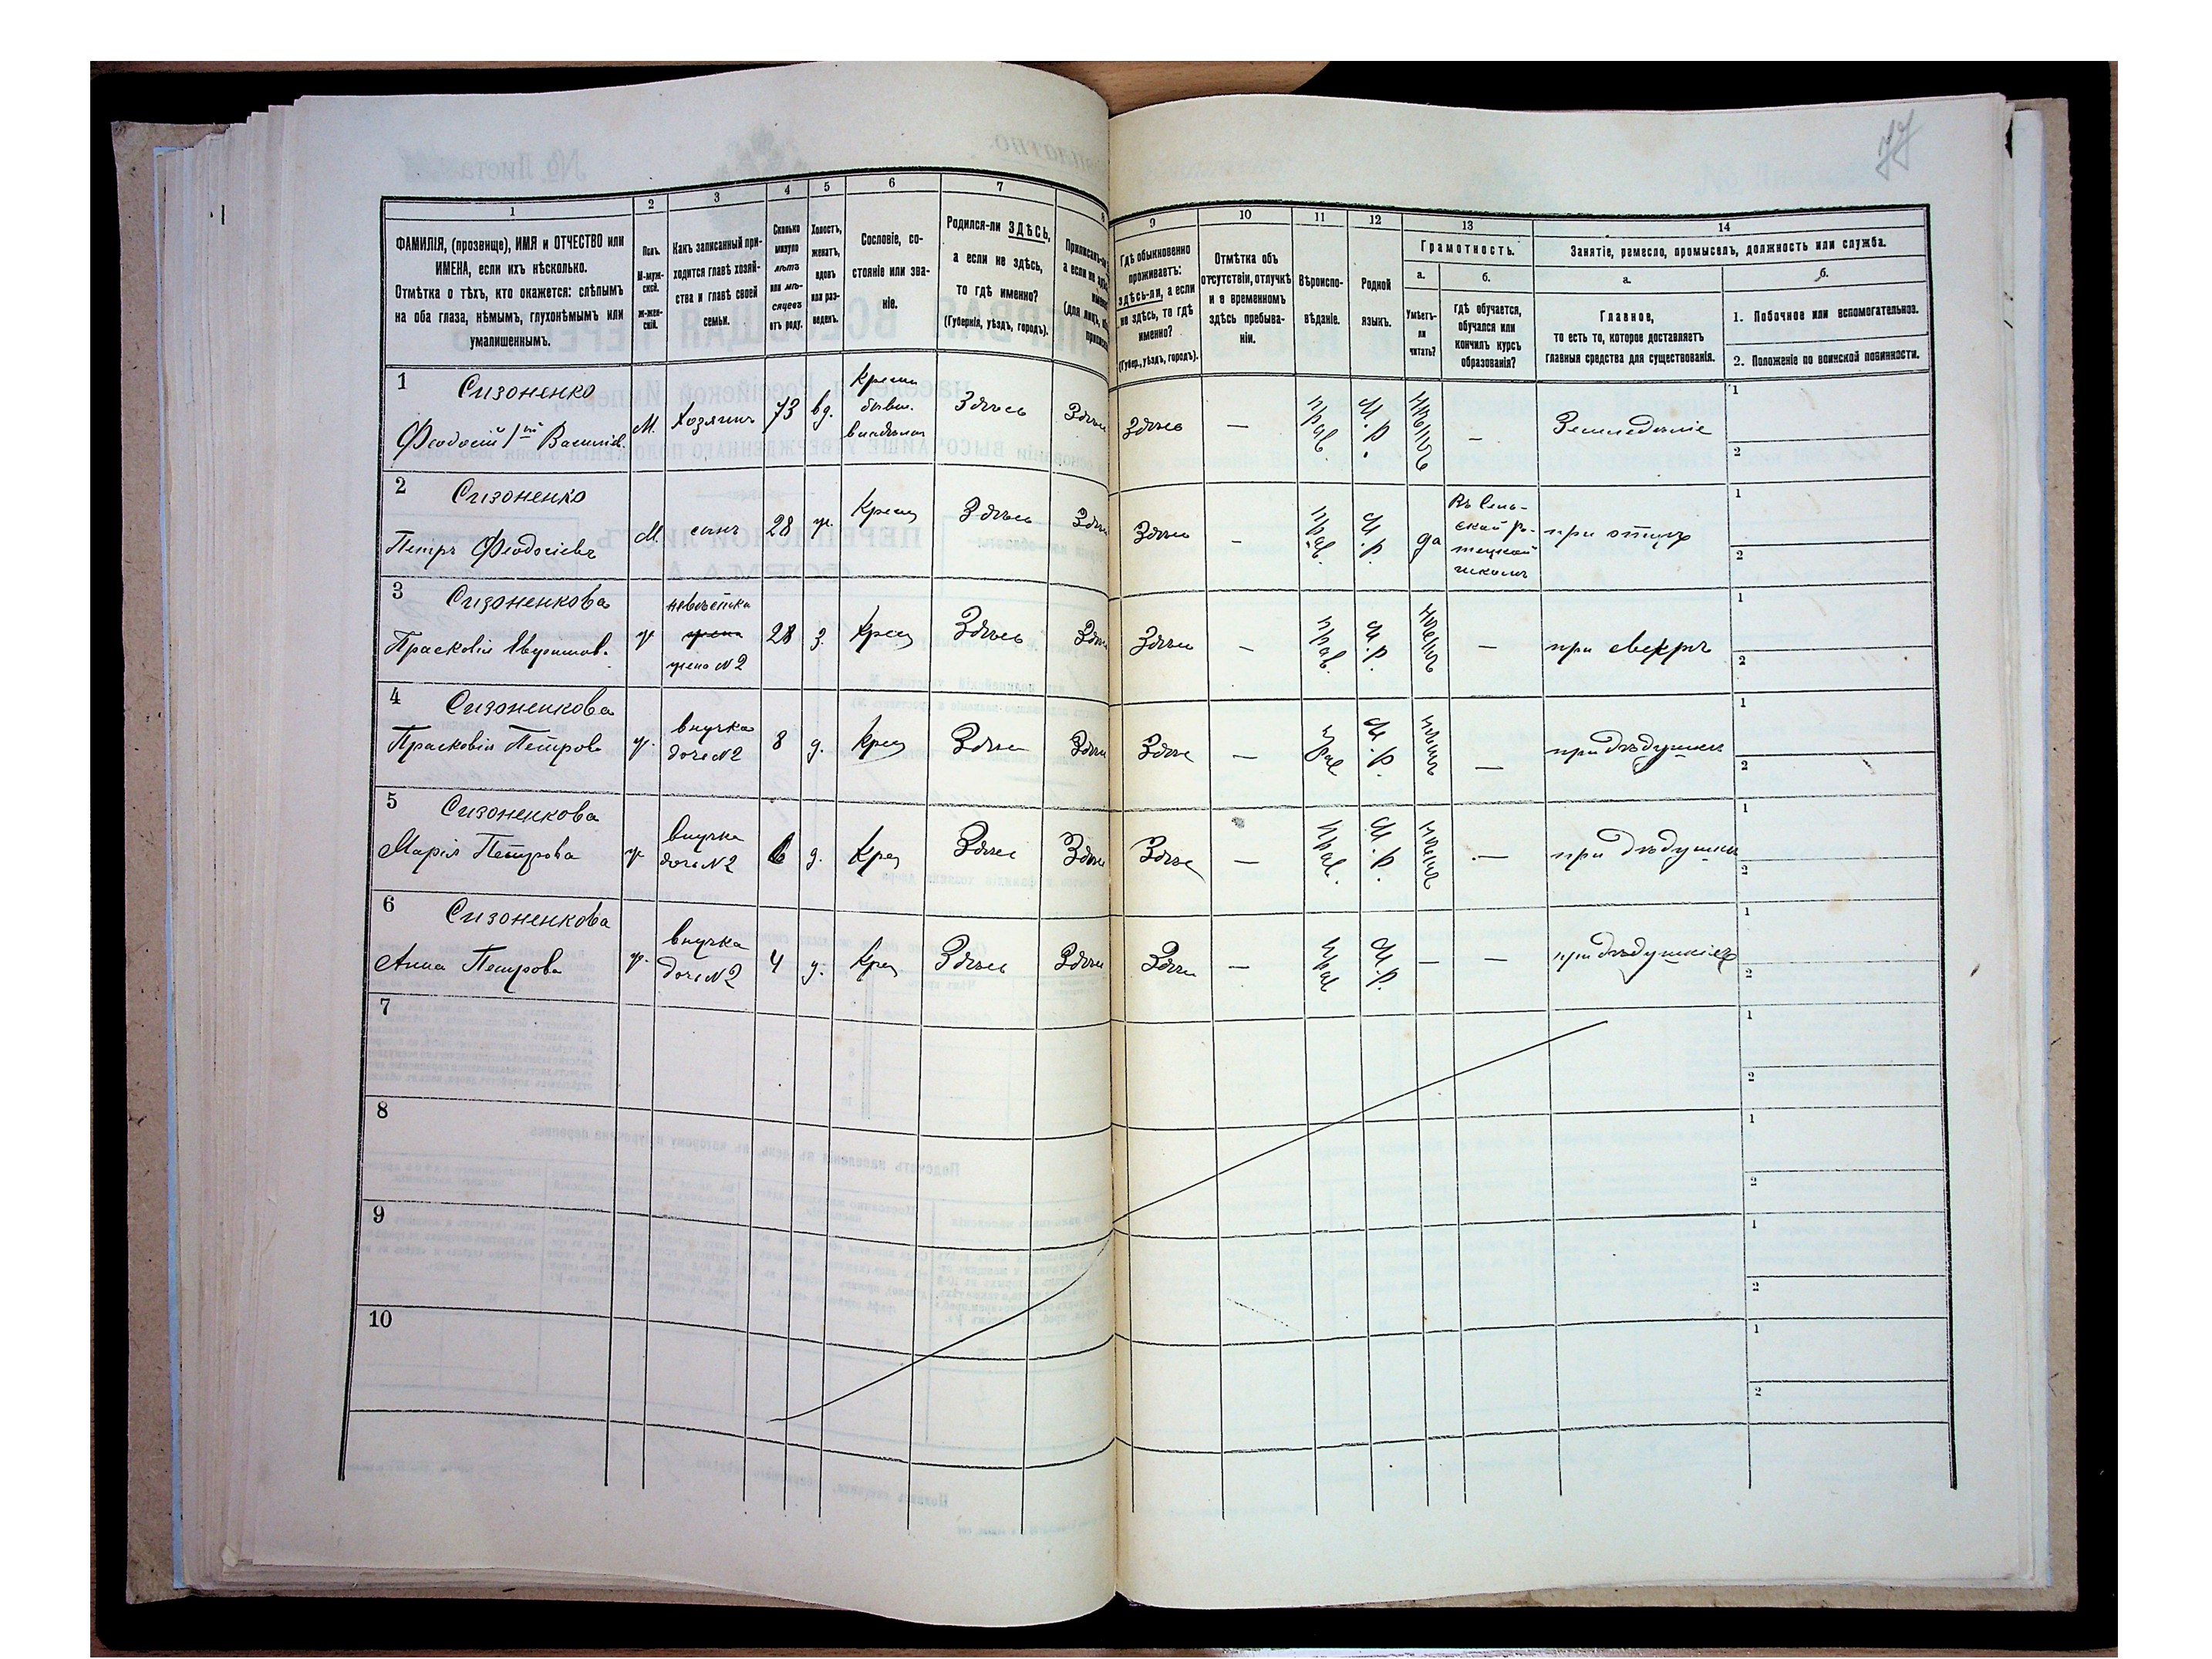 77
1
2
3
4
5
6
7
8
9
10
11
12
13
14
ФАМИЛІЯ, (прозвище), ИМЯ и ОТЧЕСТВО или
ИМЕНА, если ихъ нѣсколько.
Отмѣтка о тѣхъ, кто окажется: слѣпымъ
на оба глаза, нѣмымъ, глухонѣмымъ или
умалишеннымъ.
Полъ.
М-муж-
ской.
Ж-жен-
скій.
Какъ записанный при-
ходится главѣ хозяй-
ства и главѣ своей
семьи.
Сколько
минуло
лѣтъ
или мѣ-
сяцевъ
отъ роду.
Холостъ,
женатъ,
вдовъ
или раз-
веденъ.
Сословіе, со-
стояніе или зва-
ніе.
Родился-ли ЗДѢСЬ,
а если не здѣсь,
то гдѣ именно?
(Губернія, уѣздъ, городъ).
Гдѣ обыкновенно
проживаетъ:
здѣсь-ли, а если
не здѣсь, то гдѣ
именно?
(Губер., уѣздъ, городъ).
Отмѣтка объ
отсутствіи, отлучкѣ
и о временномъ
здѣсь пребыва-
ніи.
Вѣроиспо-
вѣданіе.
Родной
языкъ.
Грамотность.
а.
Умѣетъ-
ли
читать?
б.
Гдѣ обучается,
обучался или
кончилъ курсъ
образованія?
Занятіе, ремесло, промыселъ, должность или служба.
а.
Главное,
то есть то, которое доставляетъ
главныя средства для существованія.
б.
1. Побочное или вспомогательное.
2. Положеніе по воинской повинности.
1 Сизоненко
Феодосій 1ый Васильев.
М. Хозяинъ 73 вд. Крестьян. бывш. Здѣсь Здѣсь Здѣсь — прав. М.Р. нѣтъ — Земледѣліе
2 Сизоненко
Петръ Феодосіевъ М. сынъ 28 ж. Крест Здѣсь Здѣсь Здѣсь — прав. М.Р. да Въ Сель-
ской
школѣ при отцѣ
3 Сизоненкова
Прасковія ж невѣстка
жена
жена №2 28 з. Крест Здѣсь Здѣсь Здѣсь — прав. М.Р. нѣтъ — при свекрѣ
4 Сизоненкова
Прасковія Петрова ж. внучка
дочь №2 8 д. Крест Здѣсь Здѣсь Здѣсь — прав М.Р. нѣтъ — при дѣдушкѣ
5 Сизоненкова
Марія Петрова ж внучка
дочь №2 6 д. Крес Здѣсь Здѣсь Здѣсь — прав. М.Р. нѣтъ — при дѣдушкѣ
6 Сизоненкова
Анна Петрова ж. внучка
дочь №2 4 д. Крес Здѣсь Здѣсь Здѣсь — прав М.Р. — — при дѣдушкѣ
7
8
9
10